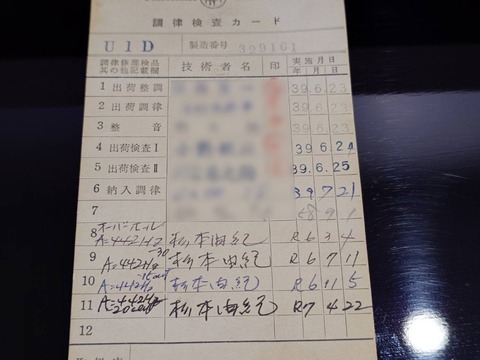 調律検査カード
U1D 製造番号 329161
調律修理検品 其の他記載欄 技術者名 印 実施月日 年月日
1 出荷整調 39.6.23
2 出荷調律 39.6.23
3 整音 39.6.23
4 出荷検査I 39 6 24
5 出荷検査II 39.6.25
6 納入調律 39 7 21
7 9 1
8 オーバーホール A=442Hz 松本由紀 R6 3 4
9 A=442Hz 松本由紀 R6 7 11
10 A=442Hz 松本由紀 R6 11 5
11 A=442Hz 20cent 松本由紀 R7 4 22
12